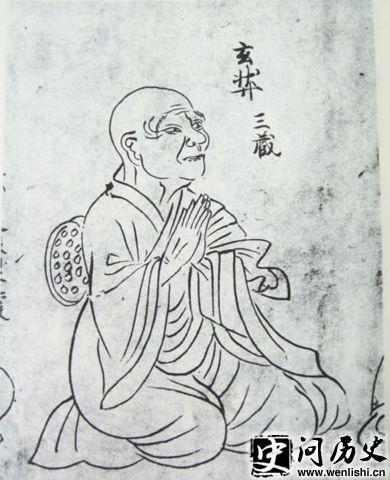 玄弉
三蔵
史问历史
www.wenlishi.cn